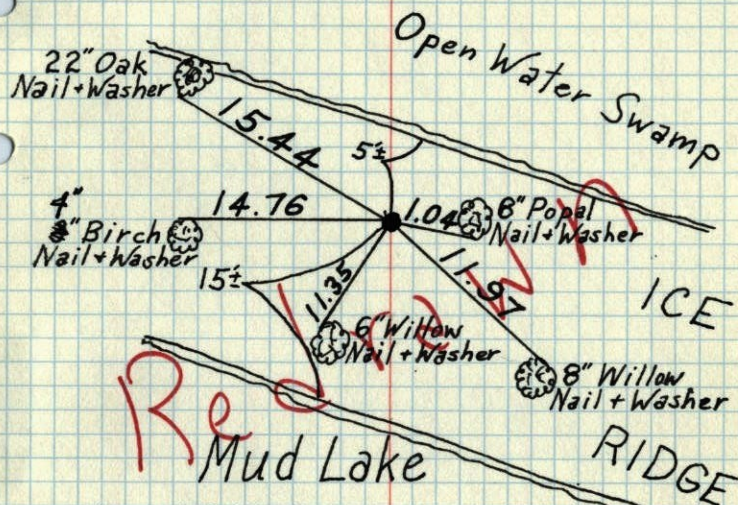 Open Water Swamp
22" Oak
Nail + Washer
15.44
5'±
4"
Birch
Nail + Washer
14.76
1.04
8" Popal
Nail + Washer
15'±
11.35
11.97
ICE
6" Willow
Nail + Washer
8" Willow
Nail + Washer
Redrawn
Mud Lake
RIDGE